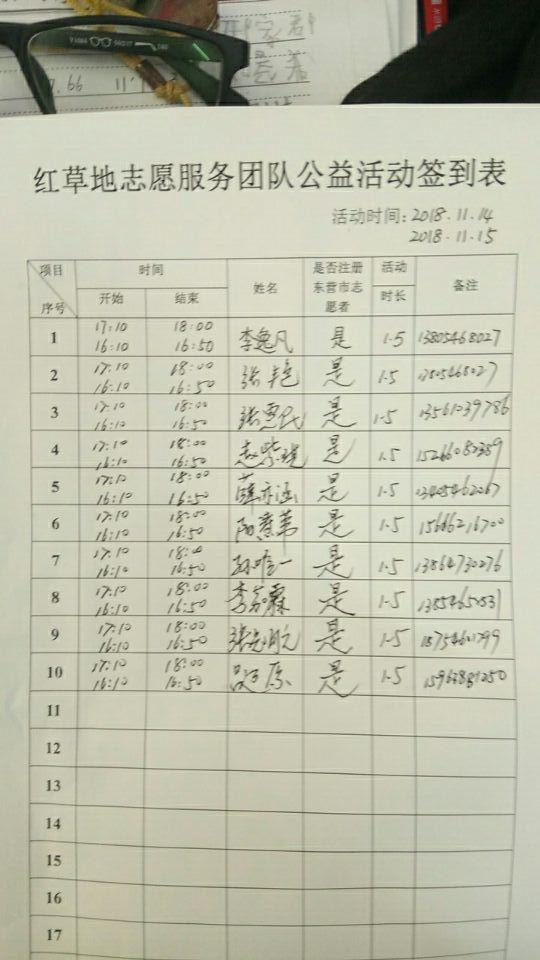 红草地志愿服务团队公益活动签到表
活动时间：2018.11.14
2018.11.15
项目 时间 姓名 是否注册东营市志愿者 活动时长 备注
序号 开始 结束
1 17:10 18:00 李逸凡 是 1.5 13805468027
16:10 16:50
2 17:10 18:00 张艳 是 1.5 13805468027
16:10 16:50
3 17:10 18:00 是 1.5 13561039786
16:10 16:50
4 17:10 18:00 赵紫 是 1.5
16:10 16:50
5 17:10 18:00 薛亦涵 是 1.5 13405462067
16:10 16:50
6 17:10 18:00 是 1.5 15686216700
16:10 16:50
7 17:10 18:00 孙唯一 是 1.5 13864730276
16:10 16:50
8 17:10 18:00 李家霖 是 1.5
16:10 16:50
9 17:10 18:00 是 1.5
16:10 16:50
10 17:10 18:00 是 1.5
16:10 16:50
11
12
13
14
15
16
17